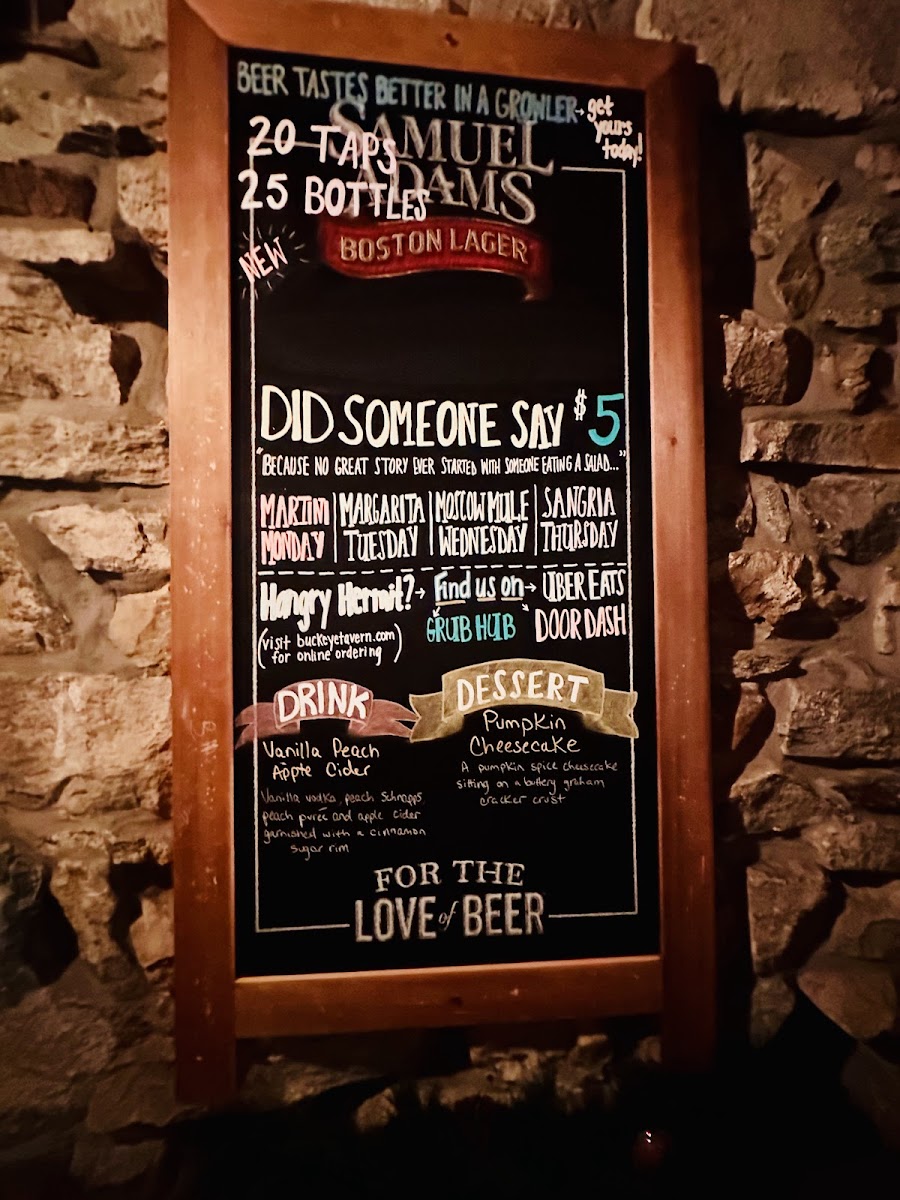 BEER TASTES BETTER IN A GROWLER→ get
yours
today!
20 TAPS
25 BOTTLES
SAMUEL
ADAMS
BOSTON LAGER
NEW
DID SOMEONE SAY $5
"BECAUSE NO GREAT STORY EVER STARTED WITH SOMEONE EATING A SALAD..."
MARTINI
MONDAY
MARGARITA
TUESDAY
MOSCOW MULE
WEDNESDAY
SANGRIA
THURSDAY
Hangry Hermit?→ Find us on→ UBER EATS
GRUB HUB DOOR DASH
(visit buckeyetavern.com
for online ordering)
DRINK
Vanilla Peach
Apple Cider
Vanilla vodka, peach Schnapps,
peach pureé and apple cider
garnished with a cinnamon
sugar rim
DESSERT
Pumpkin
Cheesecake
A pumpkin spice cheesecake
sitting on a buttery graham
cracker crust
FOR THE
LOVE of BEER